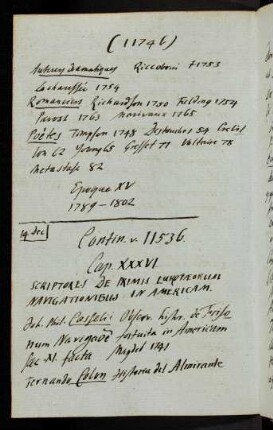 (11746)
Auteurs Dramatiques Riccoboni † 1753
Lachaussée 1754
Romanciers Richardson 1750 Fielding 1754
Prevost 1763 Marivaux 1763
Poëtes Tompson 1748 Destouches 54 Crebil
lon 62 Young 65 Gresset 77 Voltaire 78
Metastase 82
Epoque XV
1789–1802
14 Dec
Contin. v. 11536.
Cap. XXXVI
SCRIPTORES DE PRIMIS EUROPAEORUM
NAVIGATIONIBUS IN AMERICAM.
Joh. Phil. Casselii Observ. histor. de Friso
num Navigatione fortuita in Americam
Sec. XI. facta Magdeb 1741
Fernando Colon Historia del Almirante